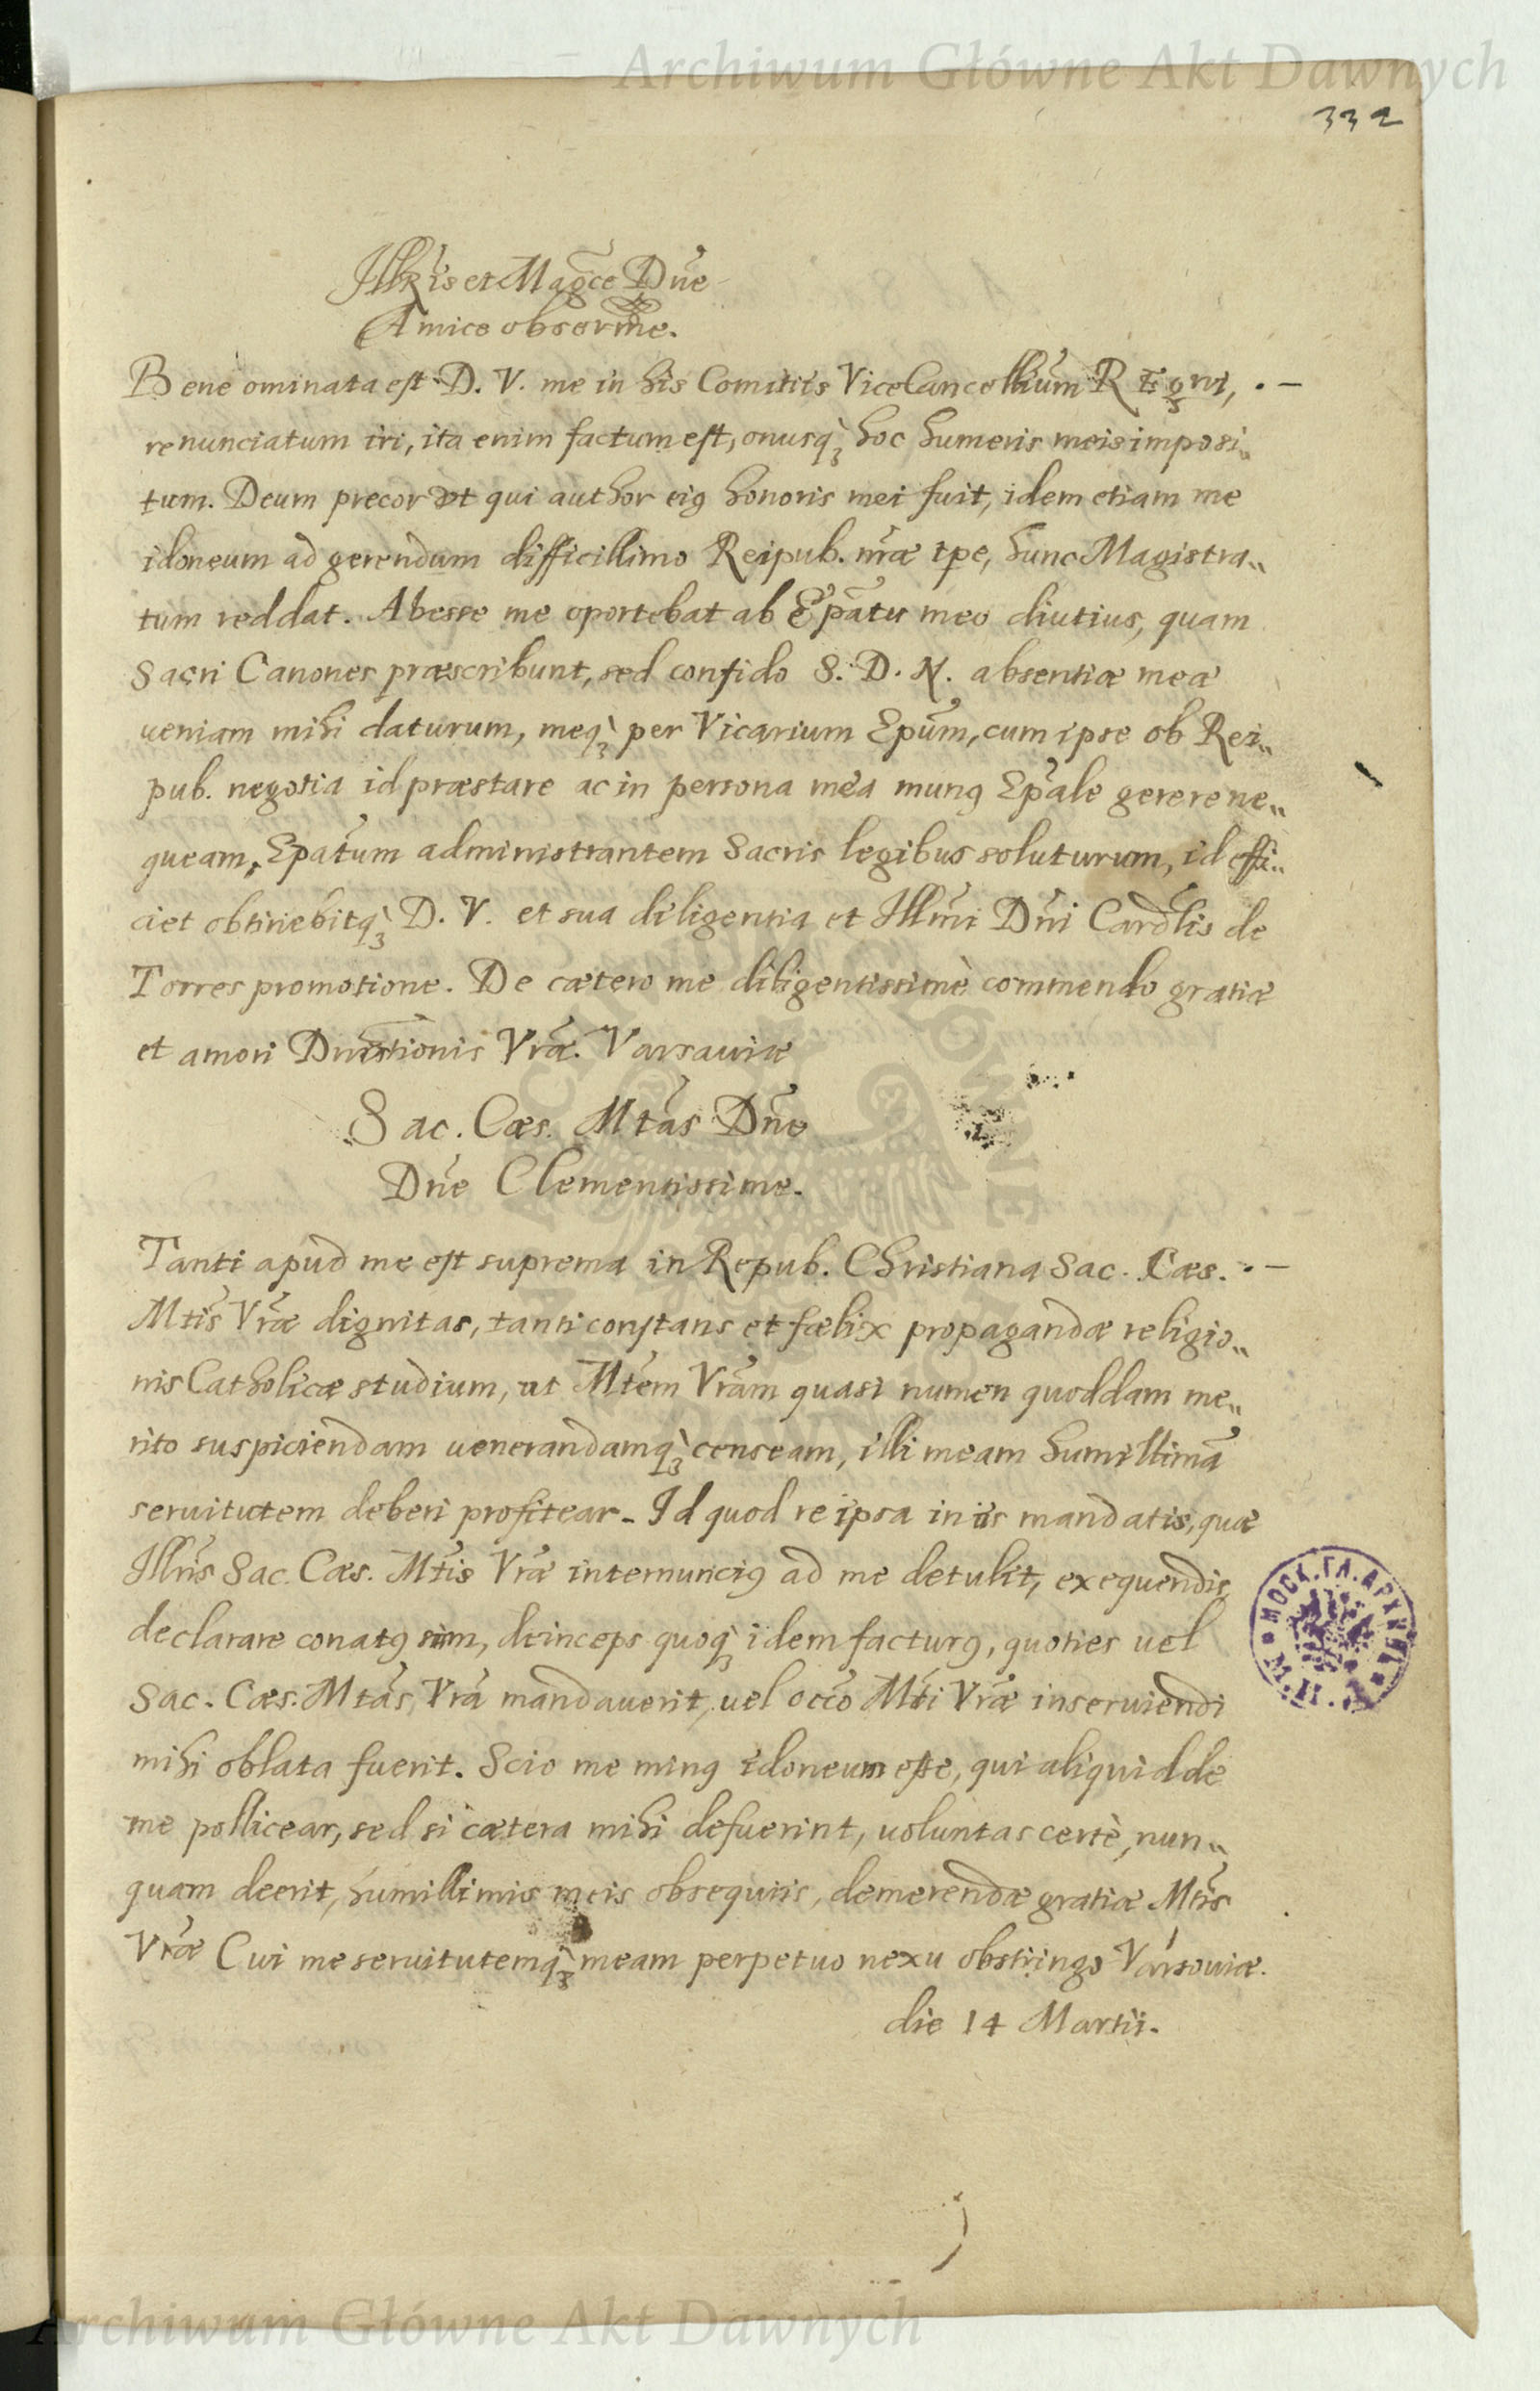 Archiwum Główne Akt Dawnych
332
Illris et Magce Dne
Amice observme.
Bene ominata est D. V. me in his Comitiis ViceCancellium Regni, . –
renunciatum iri, ita enim factum est, onusq₃ hoc humeris meis imposi„
tum. Deum precor ut qui author eiꝰ honoris mei fuit, idem etiam me
idoneum ad gerendum difficillimo Reipub. nrae tpe, hunc Magistra„
tum reddat. Abesse me oportebat ab Epatu meo diutius, quam
Sacri Canones praescribunt, sed confido S. D. N. absentiae meae
veniam mihi daturum, meq₃ per Vicarium Epum, cum ipse ob Rei„
pub. negotia id praestare ac in persona mea munꝰ Epale gerere ne„
queam, Epatum administrantem Sacris legibus soluturum, id effi„
ciet obtinebitq₃ D. V. et sua diligentia et Illmi Dni Cardlis de
Torres promotione. De caetero me diligentissimè commendo gratiae
et amori Dnistionis Vrae. Varsaviae
Sac. Caes. Mtas Dne
Dne Clementissime.
Tanti apud me est suprema in Repub. Christiana Sac. Caes. . –
Mtis Vrae dignitas, tanti constans et faelix propagandae religio„
nis Catholicae studium, ut Mtem Vram quasi numen quoddam me„
rito suspiciendam uenerandamq₃ censeam, illi meam humillimā
seruitutem deberi profitear. Id quod re ipsa in iis mandatis, quae
Illris Sac. Caes. Mtis Vrae internunciꝰ ad me detulit, exequendis
declarare conatꝰ sum, deinceps quoq₃ idem facturꝰ, quoties uel
Sac. Caes. Mtas Vra mandauerit, uel occo Mti Vrae inseruiendi
mihi oblata fuerit. Scio me minꝰ idoneum esse, qui aliquid de
me pollicear, sed si caetera mihi defuerint, uoluntas certè nun„
quam deerit, humillimis meis obsequiis, demerendae gratiae Mtis
Vrae Cui me seruitutemq₃ meam perpetuo nexu obstringo Varsouiae.
die 14 Martii.
МОСК. ГЛ. АРХИВЪ
М. И. Д.
Archiwum Główne Akt Dawnych